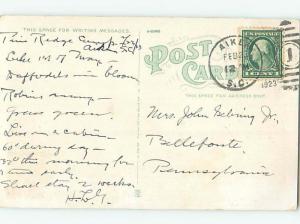 THIS SPACE FOR WRITING MESSAGES.
POST CARD
THIS SPACE FOR ADDRESS ONLY.
AIKEN
FEB
12
S.C.
1923
1 CENT 1
Pine Ridge Camp
Aiken S.C.
Like 1st of May
Daffodils in bloom
Robins many
Grass green.
Live in a cabin
60° during day -
32° this morning for
Shall stay 2 weeks.
Mrs. John Jr.
Bellefonte,
Pennsylvania